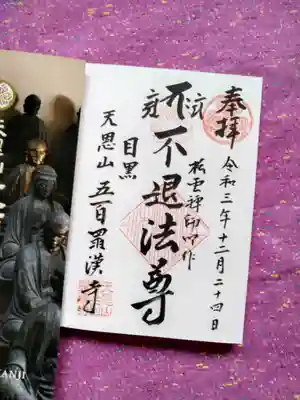 奉拝
令和三年十二月二十四日
松雲禅師作
不退法尊
目黒
天恩山五百羅漢寺
ANJI